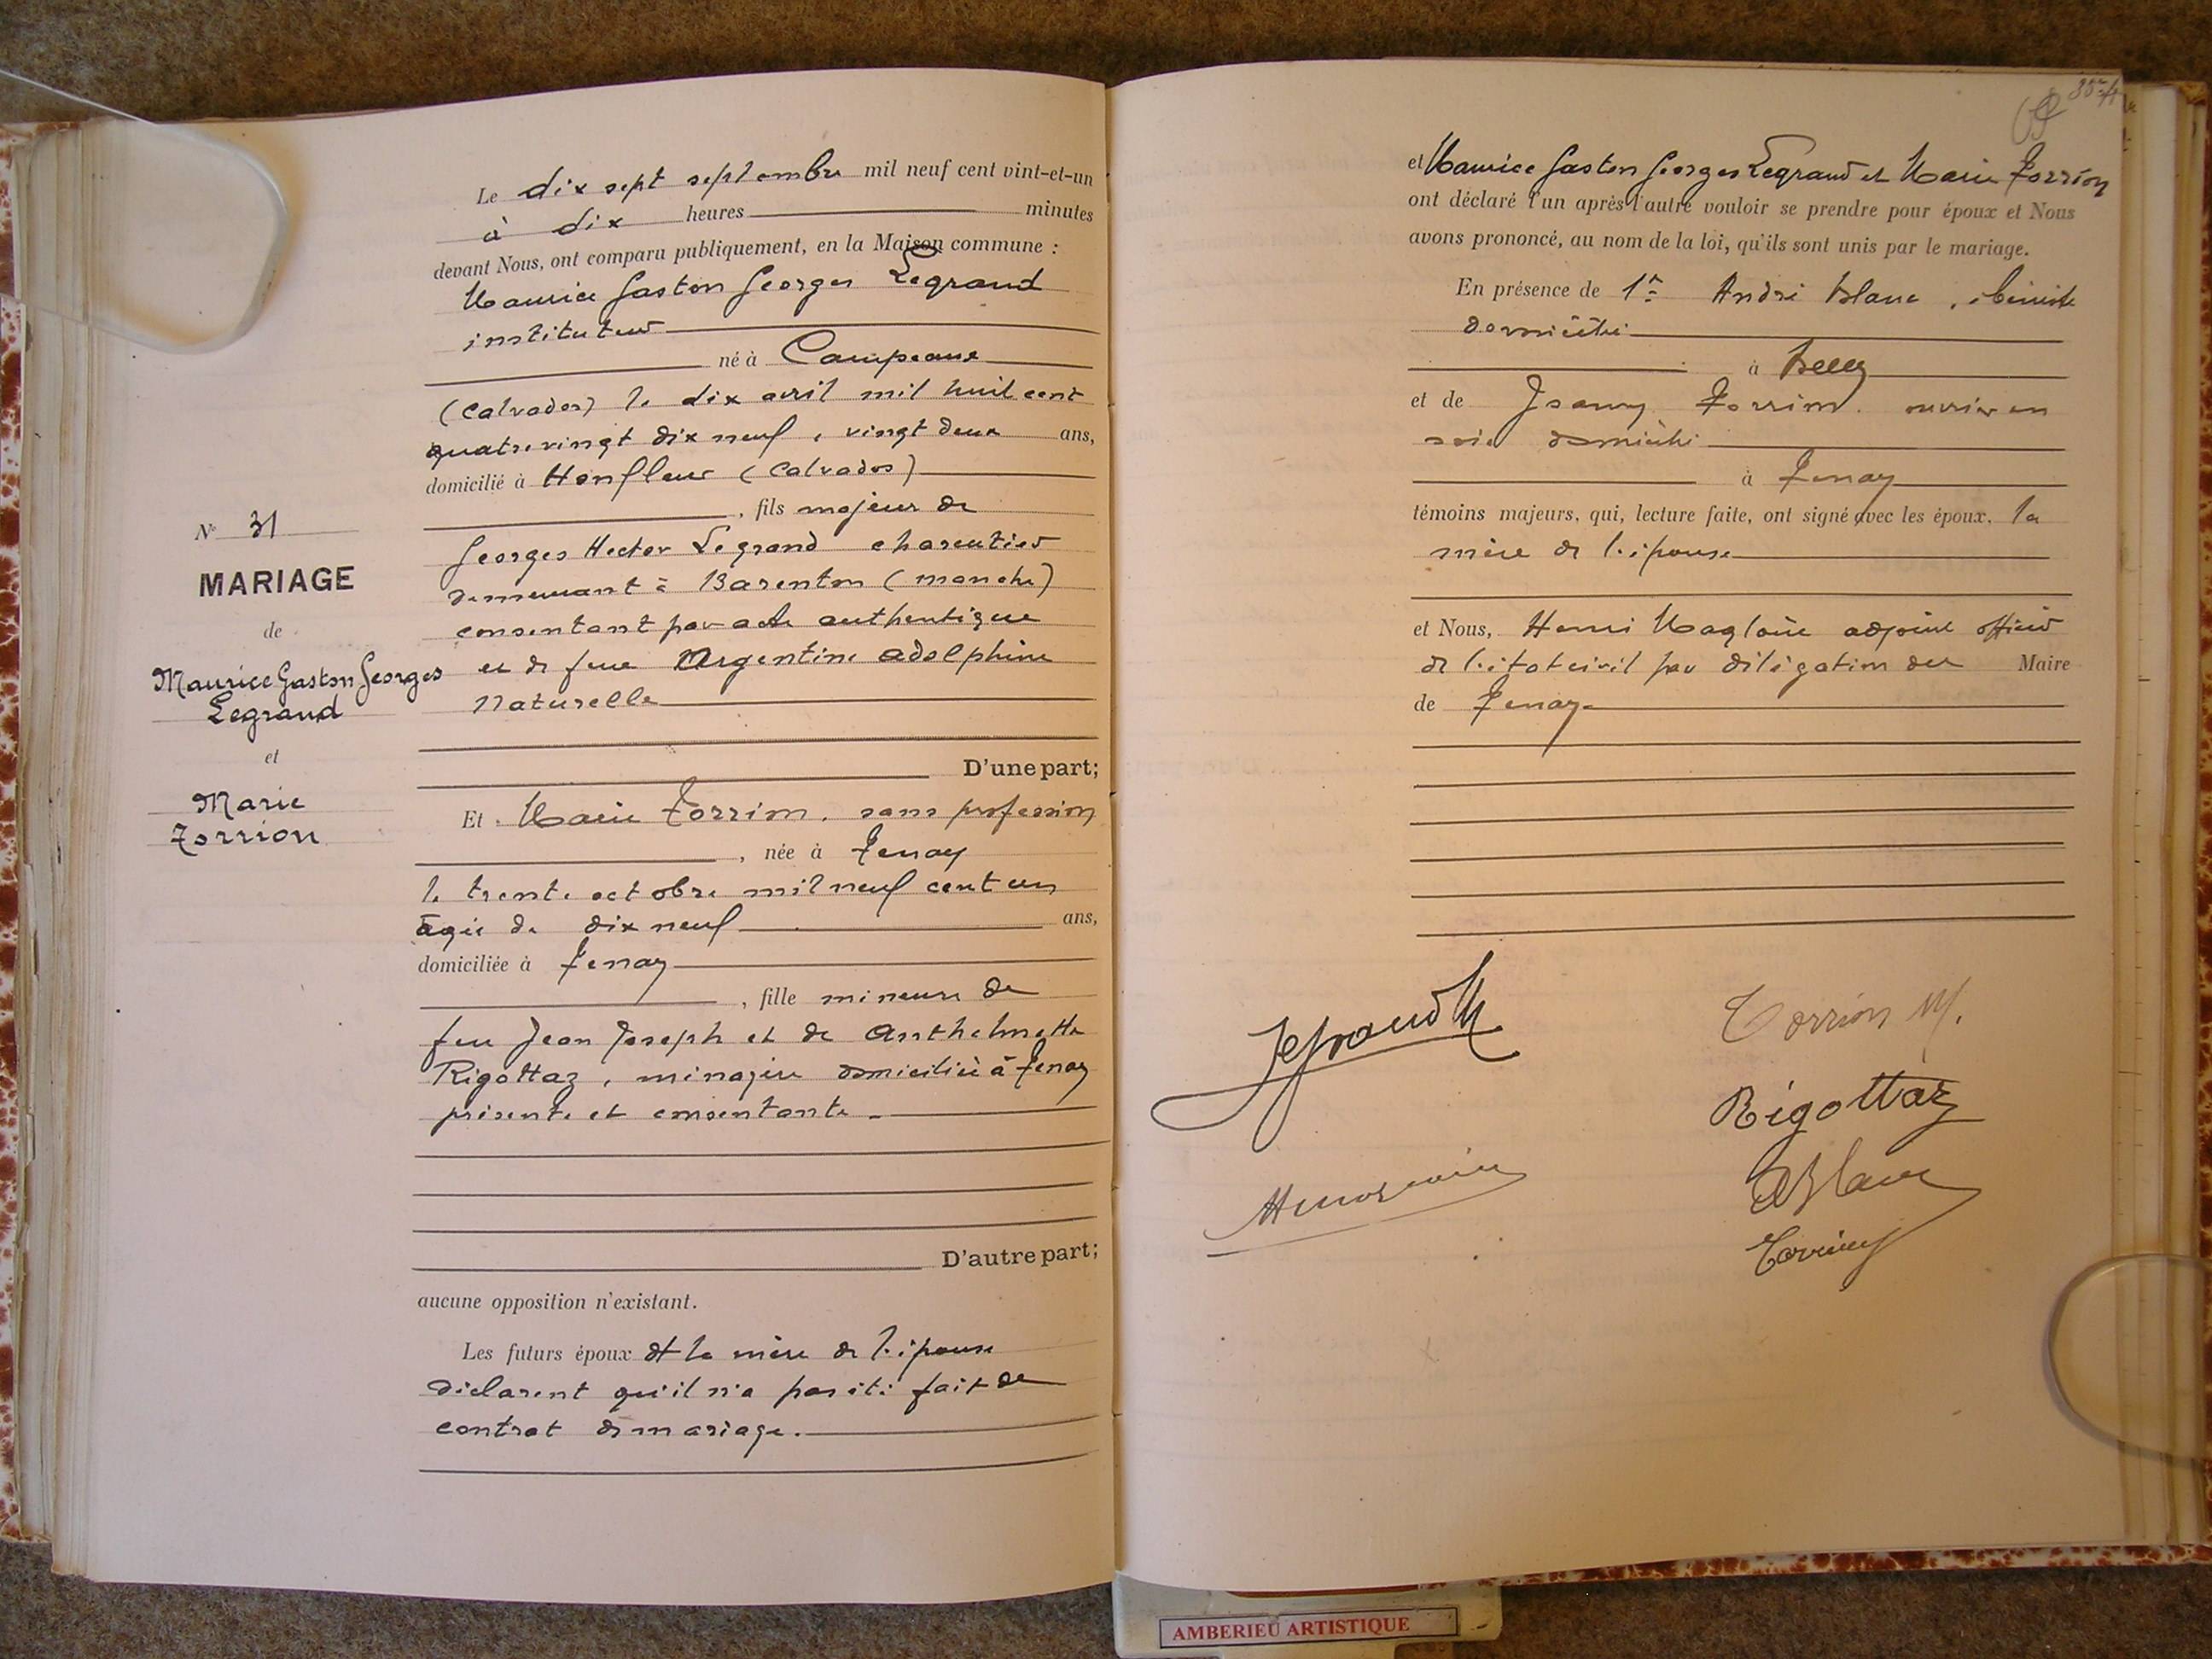 Le dix sept septembre mil neuf cent vint-et-un
à dix heures minutes
devant Nous, ont comparu publiquement, en la Maison commune :
Maurice Gaston Georges Legrand
instituteur
né à Campeaux
(Calvados) le dix avril mil huit cent
quatre vingt dix neuf, vingt deux ans,
domicilié à Honfleur (Calvados)
, fils majeur de
Georges Hector Legrand charcutier
demeurant à Barenton (manche)
consentant par acte authentique
et de feue Argentine adolphine
Naturelle
D'une part;
Et Marie Torrion, sans profession
, née à Tenay
le trente octobre mil neuf cent un
âgée de dix neuf ans,
domiciliée à Tenay
, fille mineure de
feu Jean Joseph et de Anthelmette
Rigottaz, ménagère domiciliée à Tenay
présente et consentante
D'autre part;
aucune opposition n'existant.
Les futurs époux et la mère de l'épouse
déclarent qu'il n'a pas été fait de
contrat de mariage.
N° 31
MARIAGE
de
Maurice Gaston Georges
Legrand
et
Marie
Torrion
et Maurice Gaston Georges Legrand et Marie Torrion
ont déclaré l'un après l'autre vouloir se prendre pour époux et Nous
avons prononcé, au nom de la loi, qu'ils sont unis par le mariage.
En présence de 1er André Blanc, ébéniste
domicilié
à Belley
et de Joanny Torrion ouvrier en
soie domicilié
à Tenay
témoins majeurs, qui, lecture faite, ont signé avec les époux, la
mère de l'épouse
et Nous, Henri Magloire adjoint officier
de l'état civil par délégation du Maire
de Tenay
Legrand M
Torrion M.
Rigottaz
ABlanc
AMBERIEU ARTISTIQUE